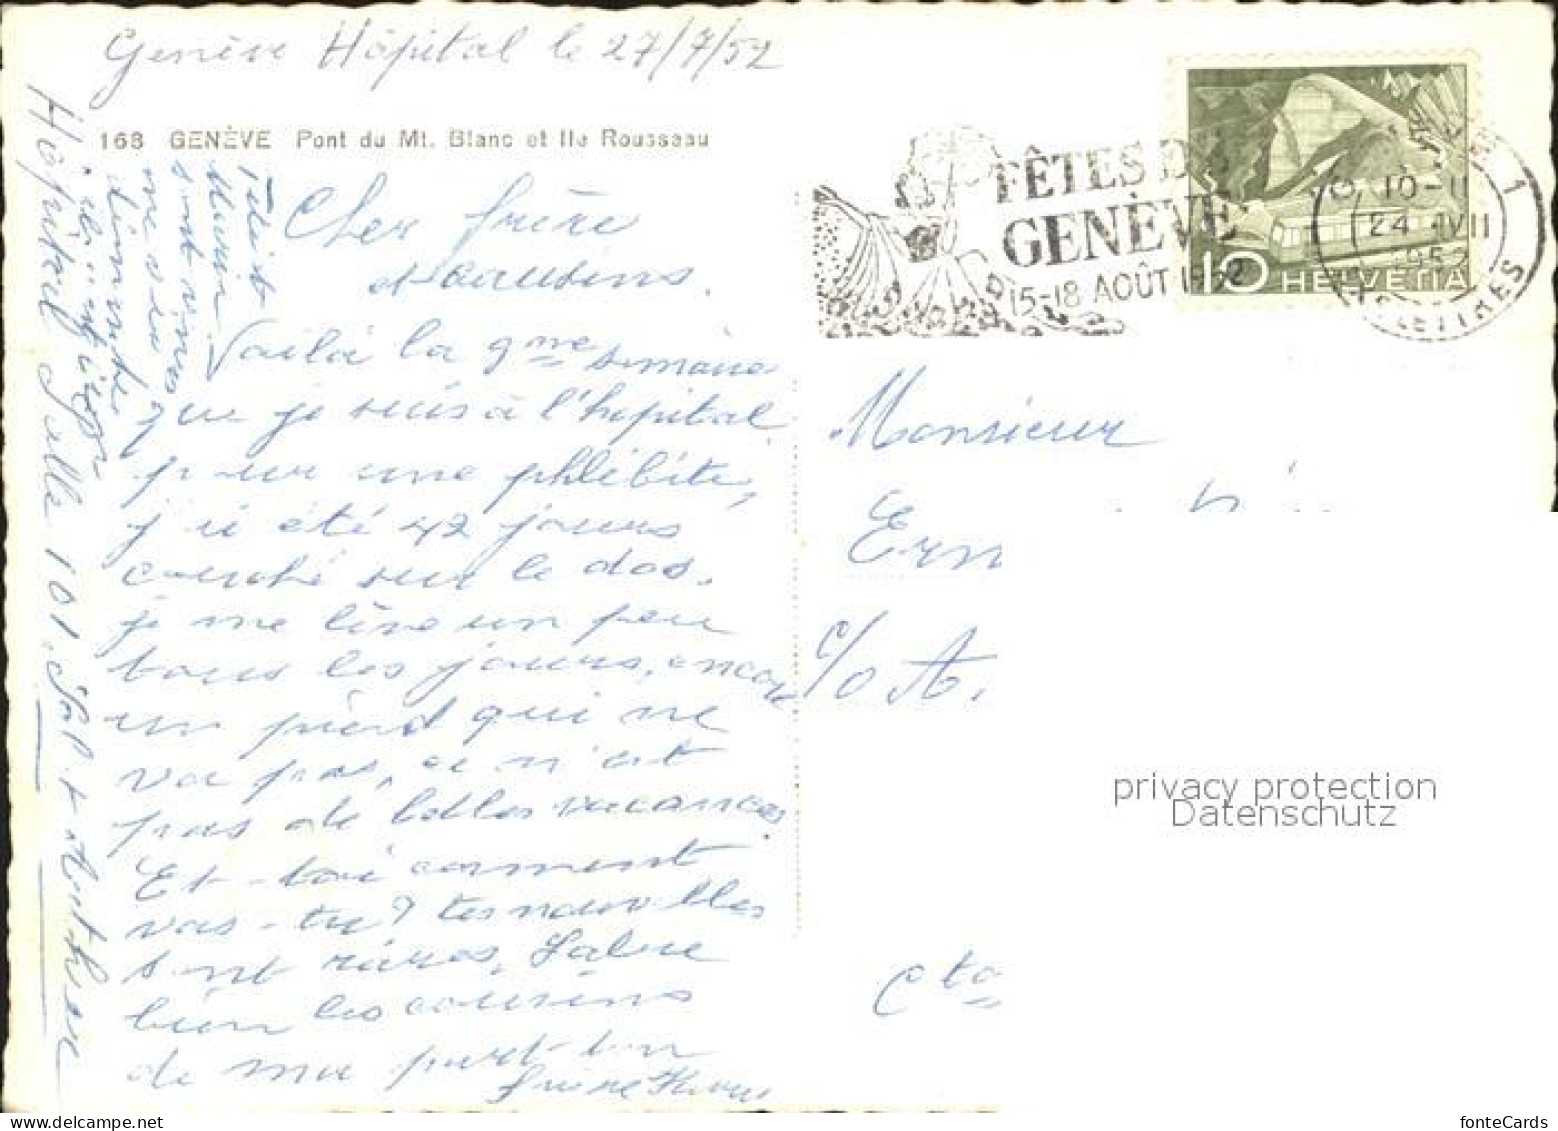 Genève Hôpital le 27/7/52
168 GENÈVE Pont du Mt. Blanc et Ile Rousseau
Cher frère
et cousins.
Voilà la 9me semaine
que je suis à l'hopital
pour une phlébite,
j'ai été 42 jours
couché sur le dos.
je me lève un peu
tous les jours, encore
un pied qui ne
va pas, ce n'est
pas de belles vacances.
Et-toi comment
vas-tu? tes nouvelles
sont rares, Salue
bien les cousins
de ma part ton
frère
Hôpital Salle 101.
Petit
sont
me
FÊTES DE
GENÈVE
15-18 AOÛT 1952
10 HELVETIA
10-11
24.VII
1952
LETTRES
1
Monsieur
Ern
c/o A.
Cto
privacy protection
Datenschutz
www.delcampe.net
fonteCards